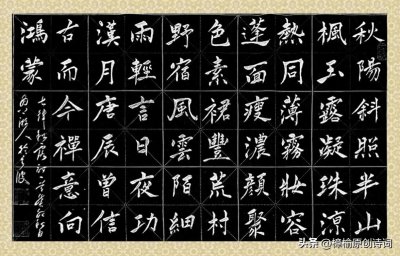 秋陽斜照半山
楓玉露凝珠涼
熱同薄霧妝容
蓬面瘦濃顏聚
色素裙豐荒村
野宿風雲陌細
雨輕言日夜功
漢月唐辰曾信
古而今禪意向
鴻蒙
七律
头条 @原创诗词